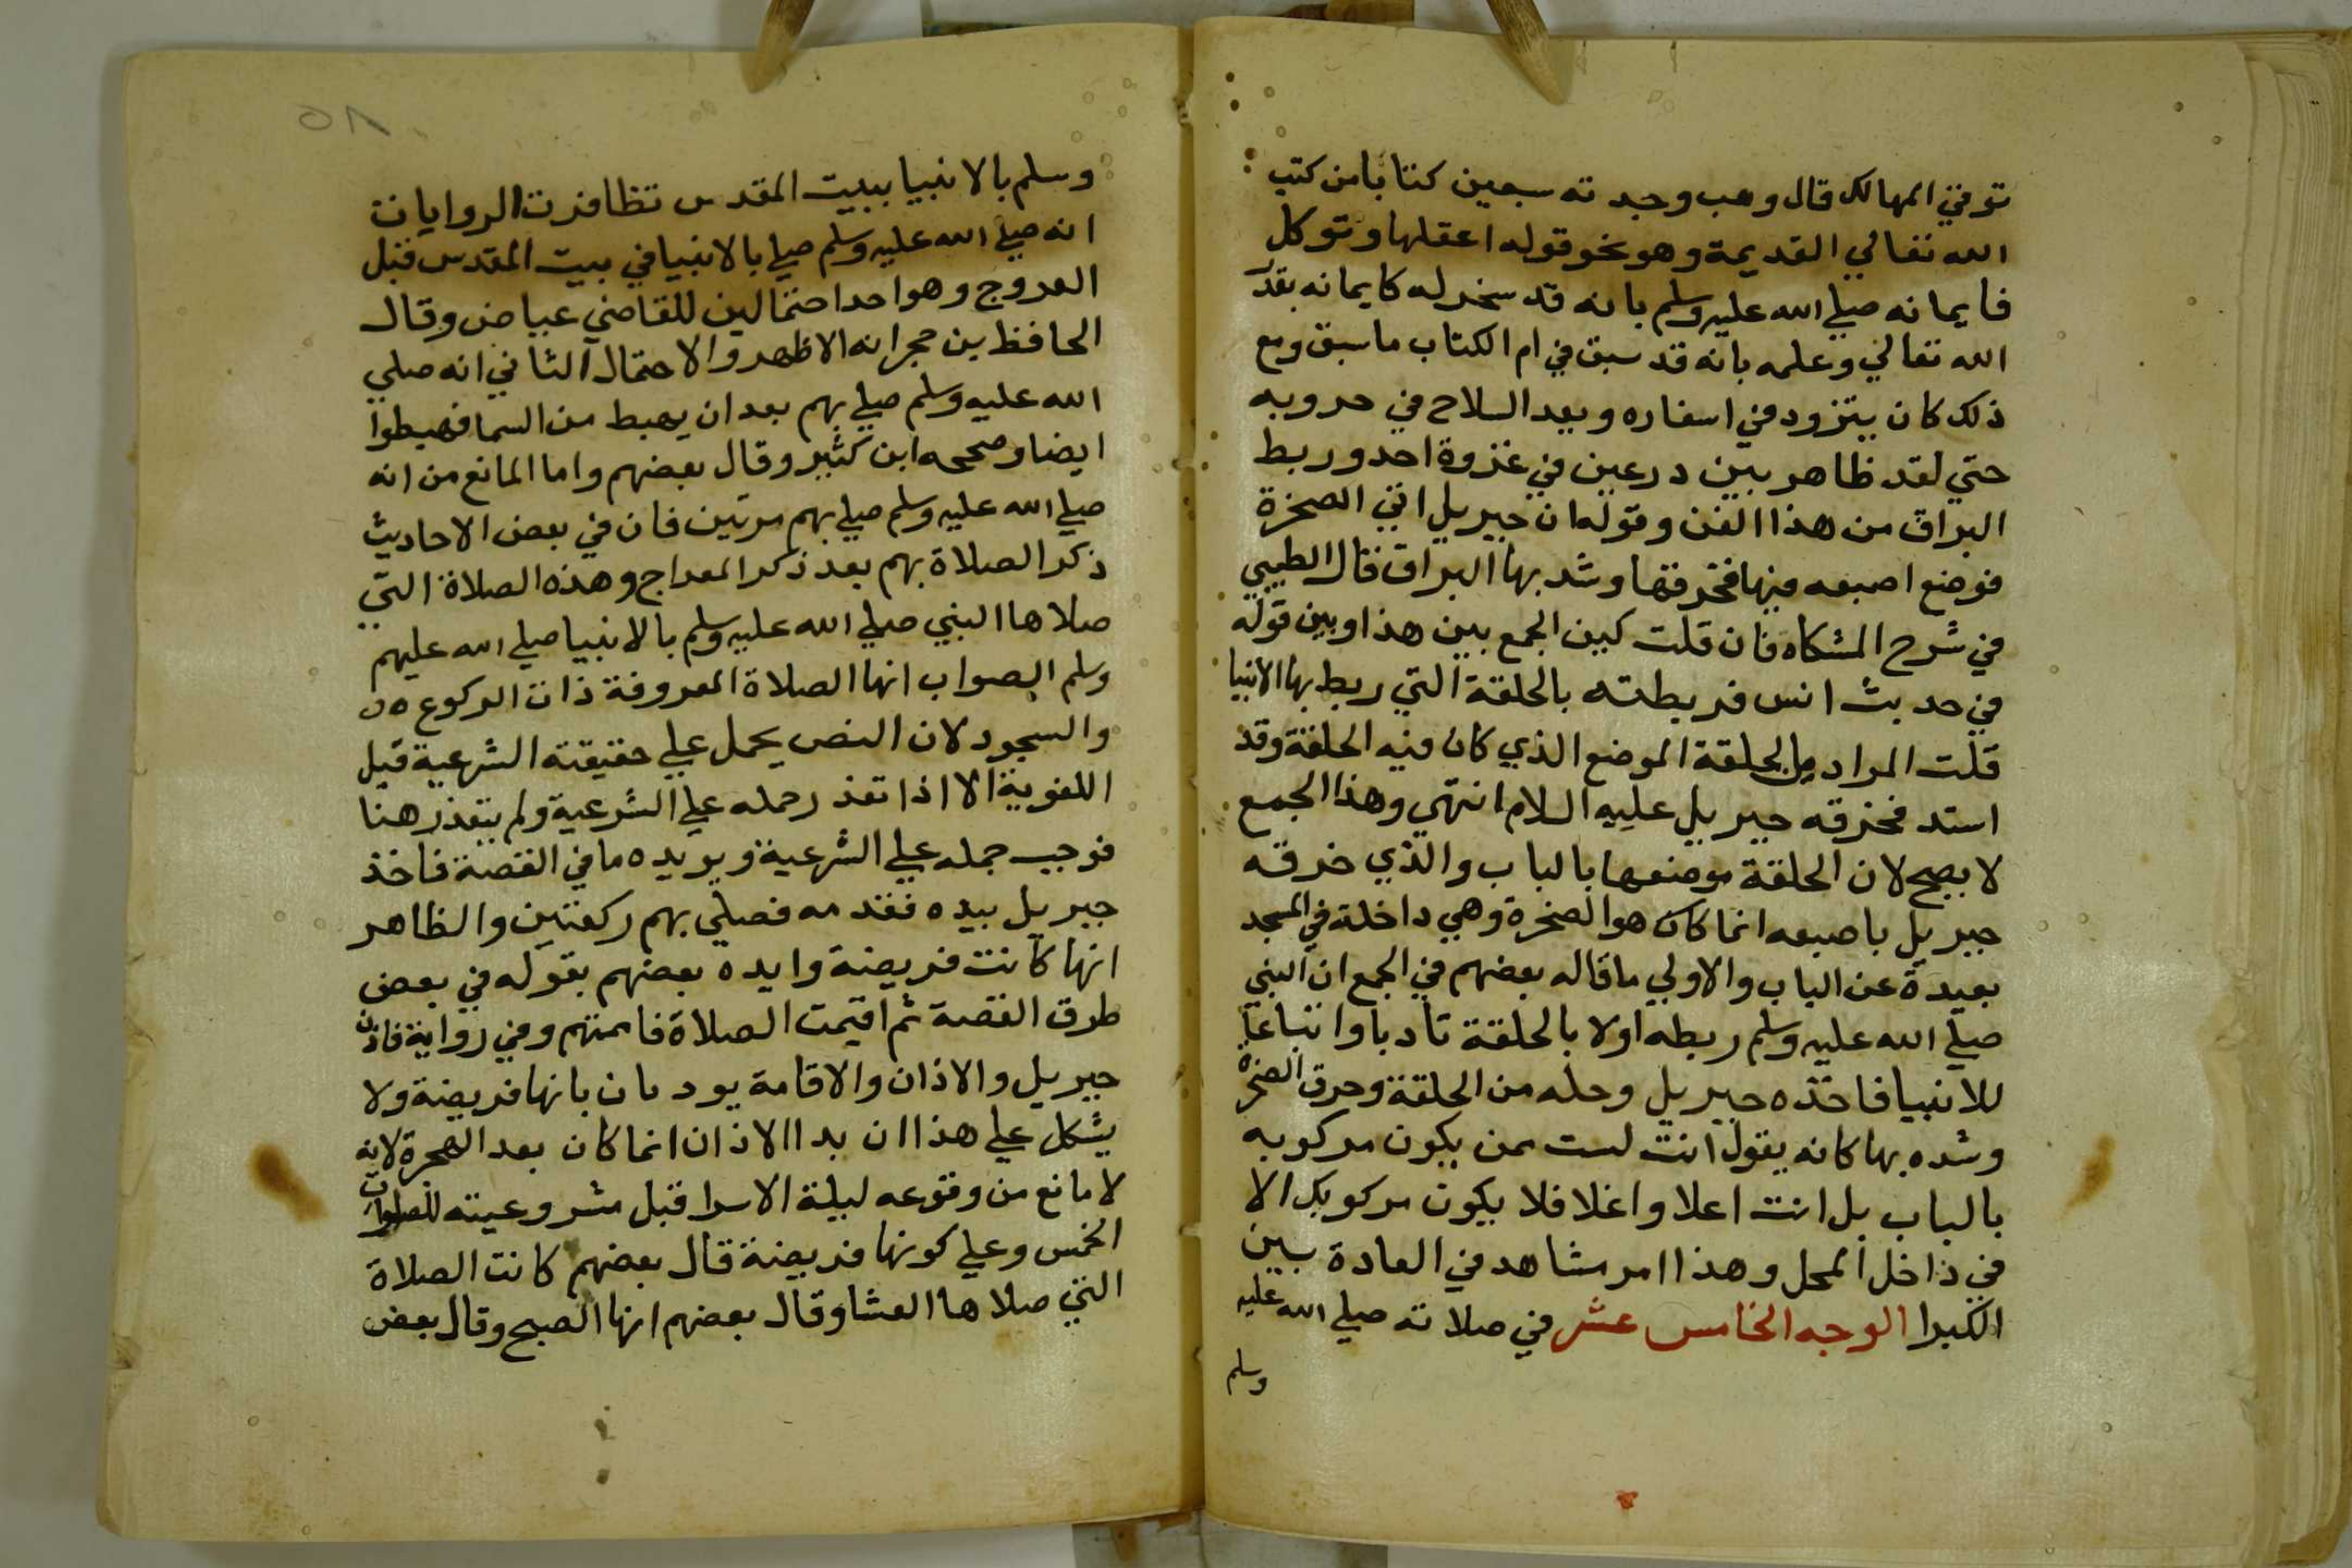 توفي المهالك قال وهب وجدته سبعين كتابا من كتب
الله تعالي القديمة وهو نحو قوله اعقلها وتوكل
فايمانه صلي الله عليه وسلم بانه قد سخر له كايمانه بقدر
الله تعالي وعلمه بانه قد سبق في ام الكتاب ما سبق ومع
ذلك كان يتزود في اسفاره ويعد السلاح في حروبه
حتي لقد ظاهر بين درعين في غزوة احد وربط
البراق من هذا الفن وقوله ان جبريل اتي الصخرة
فوضع اصبعه فيها فخرقها وشد بها البراق قال الطيبي
في شرح المشكاه فان قلت كيف الجمع بين هذا وبين قوله
في حديث انس فربطته بالحلقة التي ربط بها الانبيا
قلت المراد بالحلقة الموضع الذي كان فيه الحلقة وقد
استد فخرقه جبريل عليه السلام انتهي وهذا الجمع
لا يصح لان الحلقة موضعها بالباب والذي خرقه
جبريل باصبعه انما كان هو الصخرة وهي داخلة في المسجد
بعيدة عن الباب والاولي ما قاله بعضهم في الجمع ان النبي
صلي الله عليه وسلم ربطه اولا بالحلقة تادبا واتباعا
للانبيا فاخذه جبريل وحله من الحلقة وخرق الصخرة
وشده بها كانه يقول انت لست ممن يكون مركوبه
بالباب بل انت اعلا واغلا فلا يكون مركوبك الا
في داخل المحل وهذا امر مشاهد في العادة بين
الكبرا الوجه الخامس عشر في صلاته صلي الله عليه
وسلم
وسلم بالانبيا ببيت المقدس تظافرت الروايات
انه صلي الله عليه وسلم صلي بالانبيا في بيت المقدس قبل
العروج وهو احد احتمالين للقاضي عياض وقال
الحافظ بن حجر انه الاظهر والاحتمال الثاني انه صلي
الله عليه وسلم صلي بهم بعد ان يهبط من السما فهبطوا
ايضا وصححه ابن كثير وقال بعضهم واما المانع من انه
صلي الله عليه وسلم صلي بهم مرتين فان في بعض الاحاديث
ذكر الصلاة بهم بعد ذكر المعراج وهذه الصلاة التي
صلاها النبي صلي الله عليه وسلم بالانبيا صلي الله عليهم
وسلم الصواب انها الصلاة المعروفة ذات الركوع
والسجود لان النص يحمل علي حقيقتة الشرعية قبل
اللغوية الا اذا تعذر حمله علي الشرعية ولم يتعذر هنا
فوجب حمله علي الشرعية ويويده ما في القصة فاخذ
جبريل بيده فقدمه فصلي بهم ركعتين والظاهر
انها كانت فريضة وايده بعضهم بقوله في بعض
طرق القصة ثم اقيمت الصلاة فاممتهم وفي رواية فاذن
جبريل والاذان والاقامة يودنان بانها فريضة ولا
يشكل علي هذا ان بدا الاذان انما كان بعد الهجرة لانه
لا مانع من وقوعه ليلة الاسرا قبل مشروعيته للصلوات
الخمس وعلي كونها فريضة قال بعضهم كانت الصلاة
التي صلاها العشا وقال بعضهم انها الصبح وقال بعض